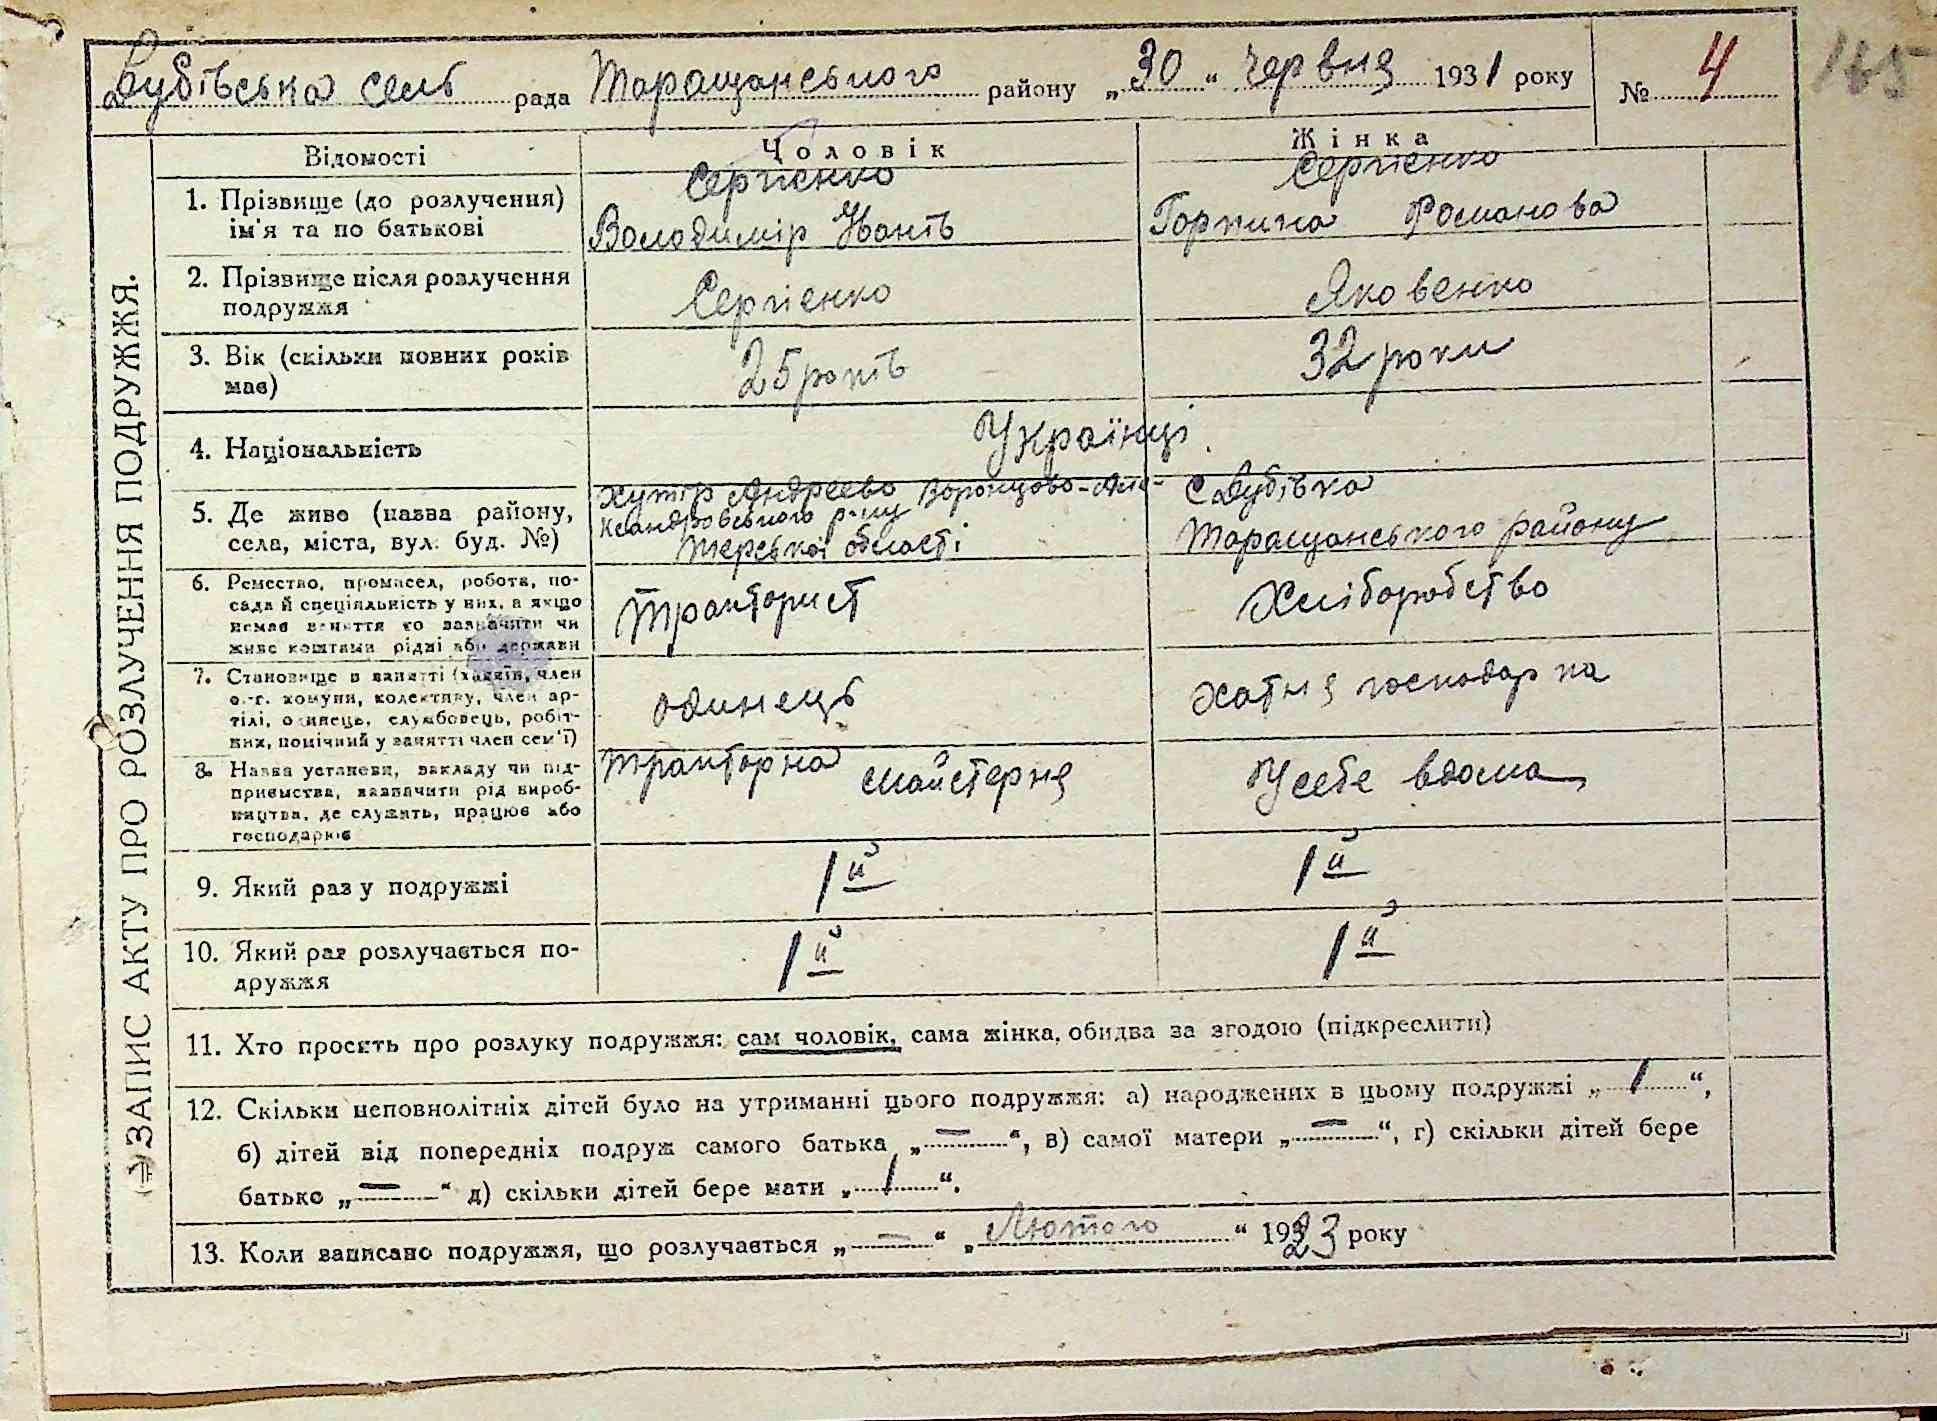 Дубівська сель рада Таращанського району „30“ червня 1931 року № 4
165
ЗАПИС АКТУ ПРО РОЗЛУЧЕННЯ ПОДРУЖЖЯ.
Відомості Чоловік Жінка
1. Прізвище (до розлучення) Сергієнко Сергієнко
ім'я та по батькові Володимір Іванів Горпина Романова
2. Прізвище після розлучення Сергієнко Яковенко
подружжя
3. Вік (скільки повних років 25 років 32 роки
має)
4. Національність Українці
5. Де живе (назва району, хутір Андреево Воронцово-Але- с Дубівка
села, міста, вул. буд. №) ксандровського р-ну Таращанського району
Терської області
6. Ремество, промисел, робота, по-
сада й спеціяльність у них, а якщо Тракторист Хліборобство
немає заняття то зазначити чи
живе коштами рідні або держави
7. Становище в занятті (хазяїн, член
с.-г. комуни, колективу, член ар- одинець хатня господарка
тілі, одинець, службовець, робіт-
ник, помічний у занятті член сем'ї)
8. Назва установи, закладу чи під- тракторна майстерня У себе вдома
приємства, зазначити рід вироб-
ництва, де служить, працює або
господарює
9. Який раз у подружжі 1й 1й
10. Який раз розлучається по- 1й 1й
дружжя
11. Хто просить про розлуку подружжя: сам чоловік, сама жінка, обидва за згодою (підкреслити)
12. Скільки неповнолітніх дітей було на утриманні цього подружжя: а) народжених в цьому подружжі „1“,
б) дітей від попередніх подруж самого батька „—“, в) самої матери „—“, г) скільки дітей бере
батько „—“ д) скільки дітей бере мати „1“.
13. Коли записано подружжя, що розлучається „—“ „Лютого“ 1923 року